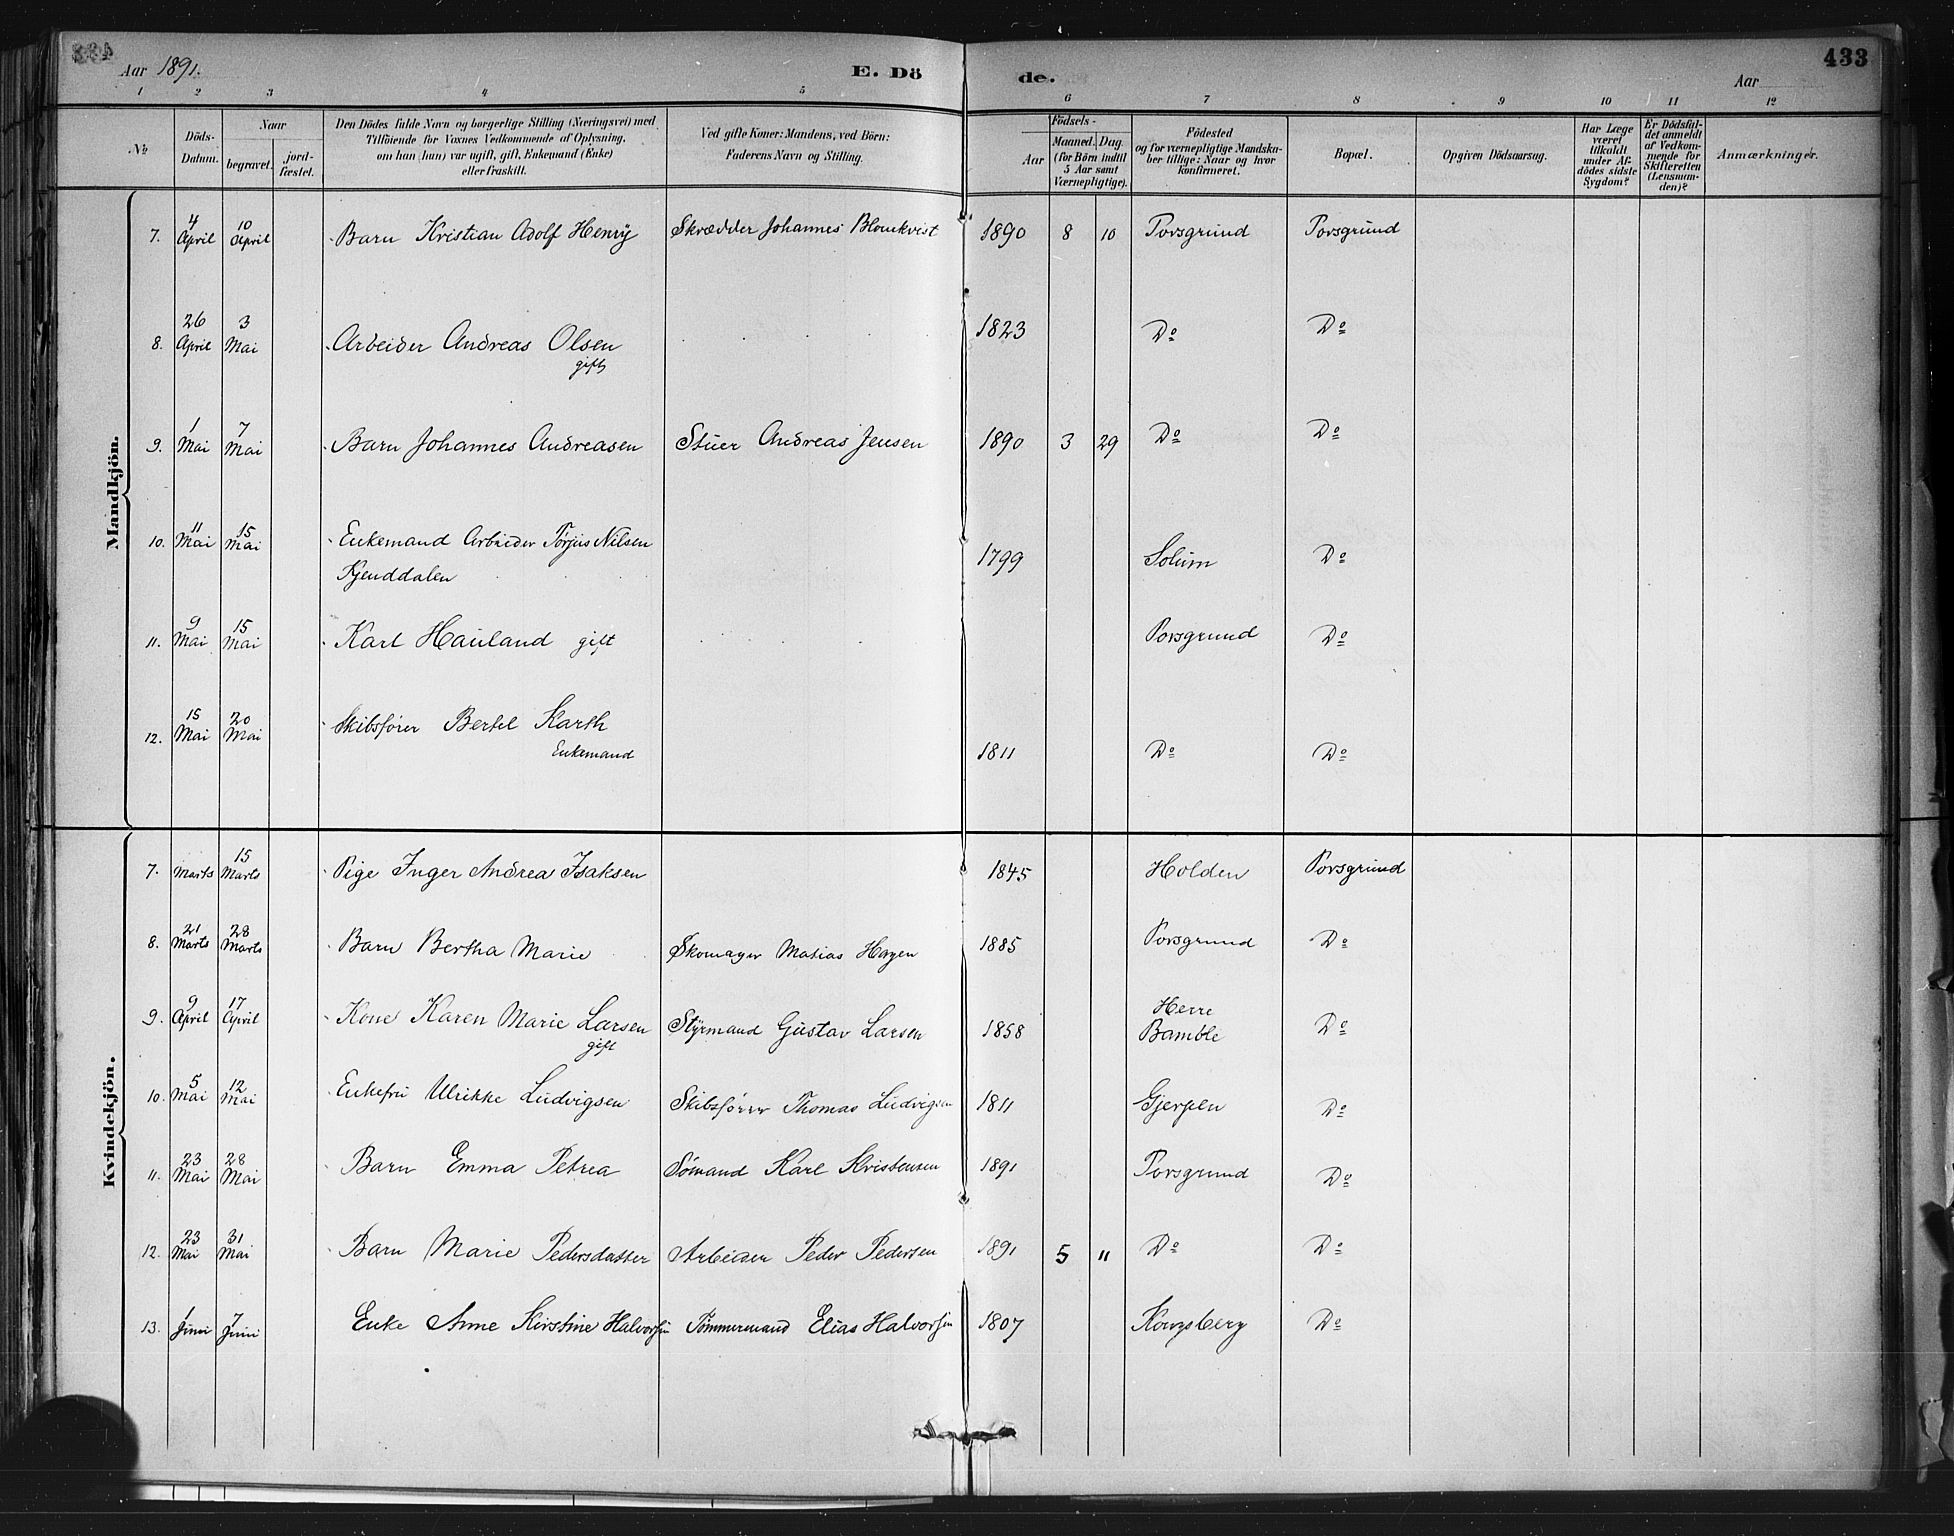 Aar 1891.
E. Dö
de.
Aar
433
1 2 3 4 5 6 7 8 9 10 11 12
№
Döds-Datum.
Naar
begravet.
jord-fæstet.
Den Dödes fulde Navn og borgerlige Stilling (Næringsvei) med
Tilföiende for Voxnes Vedkommende af Oplysning,
om han (hun) var ugift, gift, Enkemand (Enke)
eller fraskilt.
Ved gifte Koner: Mandens, ved Börn:
Faderens Navn og Stilling.
Födsels-
Aar
Maaned. Dag.
(for Börn indtil
5 Aar samt
Værnepligtige).
Födested
og for værnepligtige Mandskaber tillige: Naar og hvor
konfirmeret.
Bopæl.
Opgiven Dödsaarsag.
Har Læge
været
tilkaldt
under Afdödes sidste
Sygdom?
Er Dödsfaldet anmeldt
af Vedkommende for
Skifteretten
(Lensmanden)?
Anmærkninger.
Mandkjön.
7. 4 April 10 April Barn Kristian Adolf Henry Skrædder Johannes Blomkvist 1890 8 10 Porsgrund Porsgrund
8. 26 April 3 Mai Arbeider Andreas Olsen 1823 Do Do
gift
9. 1 Mai 7 Mai Barn Johannes Andreasen Stuer Andreas Jensen 1890 3 29 Do Do
10. 11 Mai 15 Mai Enkemand Arbeider Törjus Nilsen
Kjenddalen 1799 Solum Do
11. 9 Mai 15 Mai Karl Hauland gift Porsgrund Do
12. 15 Mai 20 Mai Skibsfører Bertel Karth
Enkemand 1811 Do Do
Kvindekjön.
7. Marts 15 Marts Pige Inger Andrea Isaksen 1845 Holden Porsgrund
8. 21 Marts 28 Marts Barn Bertha Marie Skomager Matias Hagen 1885 Porsgrund Do
9. 9 April 17 April Kone Karen Marie Larsen Styrmand Gustav Larsen 1858 Herre
Bamble Do
gift
10. 5 Mai 12 Mai Enkefru Ulrikke Ludvigsen Skibsfører Thomas Ludvigsen 1811 Gjerpen Do
11. 23 Mai 28 Mai Barn Emma Petrea Sømand Karl Kristensen 1891 Porsgrund Do
12. 23 Mai 31 Mai Barn Marie Pedersdatter Arbeider Peder Pedersen 1891 5 " Do Do
13. 1 Juni 7 Juni Enke Anne Kirstine Halvorsen Tømmermand Elias Halvorsen 1807 Kongsberg Do